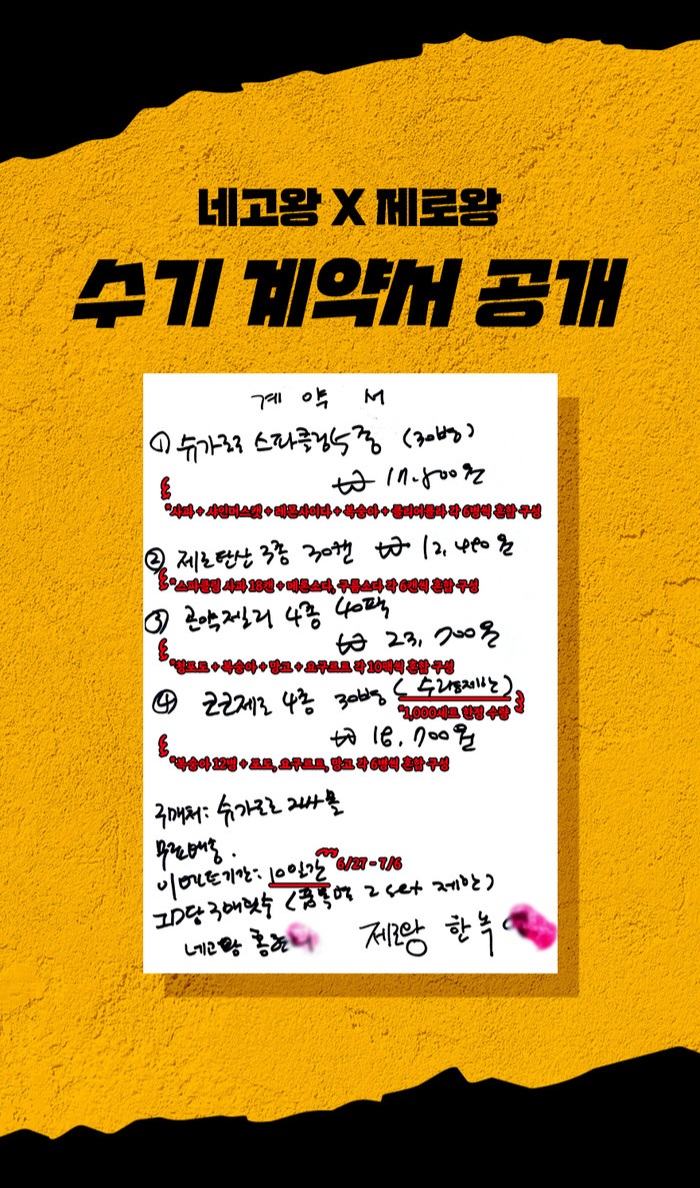 네고왕 X 제로왕
수기 계약서 공개
계 약 서
① 슈가로로 스파클링 5종 (30병)
₩ 17.800원
*사과 + 샤인머스켓 + 레몬사이다 + 복숭아 + 콜리아콜라 각 6병씩 혼합 구성
② 제로탄산 3종 30캔 ₩ 12,490원
*스파클링 사과 18캔 + 메론소다, 구름소다 각 6캔씩 혼합 구성
③ 곤약젤리 4종 40팩
₩ 23,700원
*청포도 + 복숭아 + 망고 + 요구르트 각 10팩씩 혼합 구성
④ 코코제로 4종 30병 (수량제한)
*1,000세트 한정 수량
₩ 16,700원
*복숭아 12병 + 포도, 요구르트, 망고 각 6병씩 혼합 구성
구매처: 슈가로로 자사몰
무료배송.
이벤트기간: 10일간 6/27 - 7/6
ID당 구매횟수 (품목별 2 set 제한)
네고왕 홍
제로왕 한녹